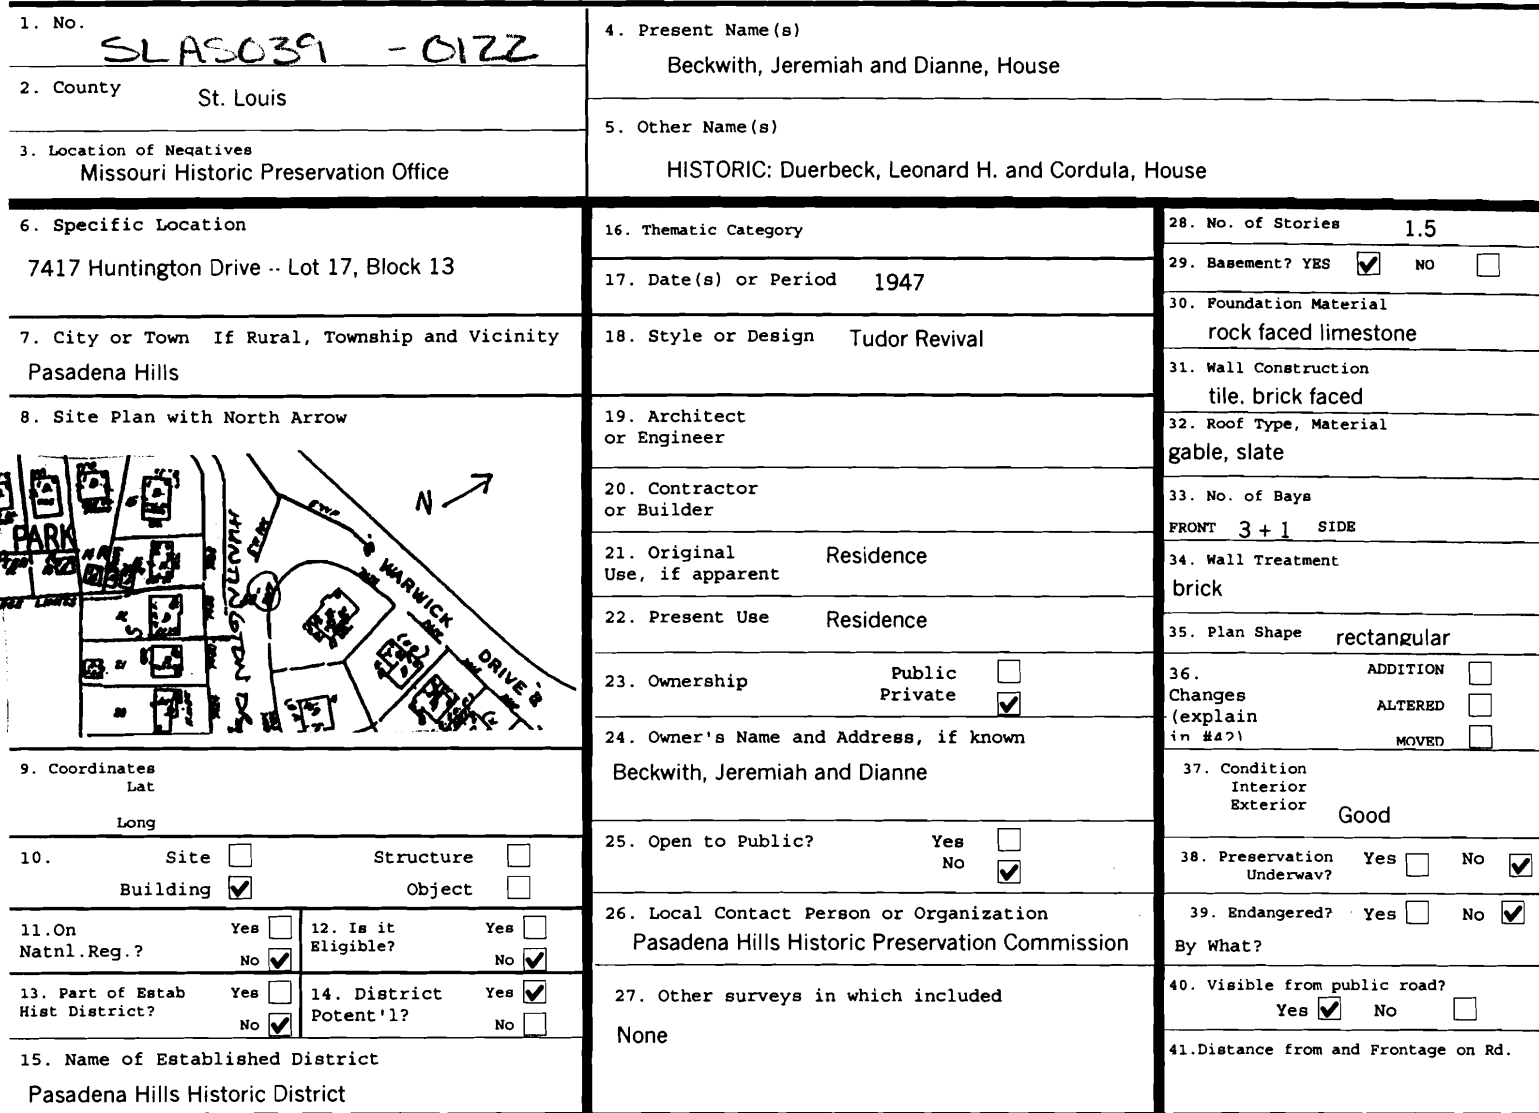 1. No.
SLAS039 -0122
2. County
St. Louis
3. Location of Negatives
Missouri Historic Preservation Office
4. Present Name(s)
Beckwith, Jeremiah and Dianne, House
5. Other Name(s)
HISTORIC: Duerbeck, Leonard H. and Cordula, House
6. Specific Location
7417 Huntington Drive -- Lot 17, Block 13
7. City or Town If Rural, Township and Vicinity
Pasadena Hills
8. Site Plan with North Arrow
N
PARK
HUNTINGTON DR
WARWICK
DRIVE
9. Coordinates
Lat
Long
10. Site Structure
Building Object
11.On Yes
Natnl.Reg.? No
12. Is it Yes
Eligible? No
13. Part of Estab Yes
Hist District? No
14. District Yes
Potent'l? No
15. Name of Established District
Pasadena Hills Historic District
16. Thematic Category
17. Date(s) or Period 1947
18. Style or Design Tudor Revival
19. Architect
or Engineer
20. Contractor
or Builder
21. Original Residence
Use, if apparent
22. Present Use Residence
23. Ownership Public
Private
24. Owner's Name and Address, if known
Beckwith, Jeremiah and Dianne
25. Open to Public? Yes
No
26. Local Contact Person or Organization
Pasadena Hills Historic Preservation Commission
27. Other surveys in which included
None
28. No. of Stories 1.5
29. Basement? YES NO
30. Foundation Material
rock faced limestone
31. Wall Construction
tile. brick faced
32. Roof Type, Material
gable, slate
33. No. of Bays
FRONT 3 + 1 SIDE
34. Wall Treatment
brick
35. Plan Shape rectangular
36. ADDITION
Changes
(explain ALTERED
in #42) MOVED
37. Condition
Interior
Exterior Good
38. Preservation Yes No
Underway?
39. Endangered? Yes No
By What?
40. Visible from public road?
Yes No
41.Distance from and Frontage on Rd.